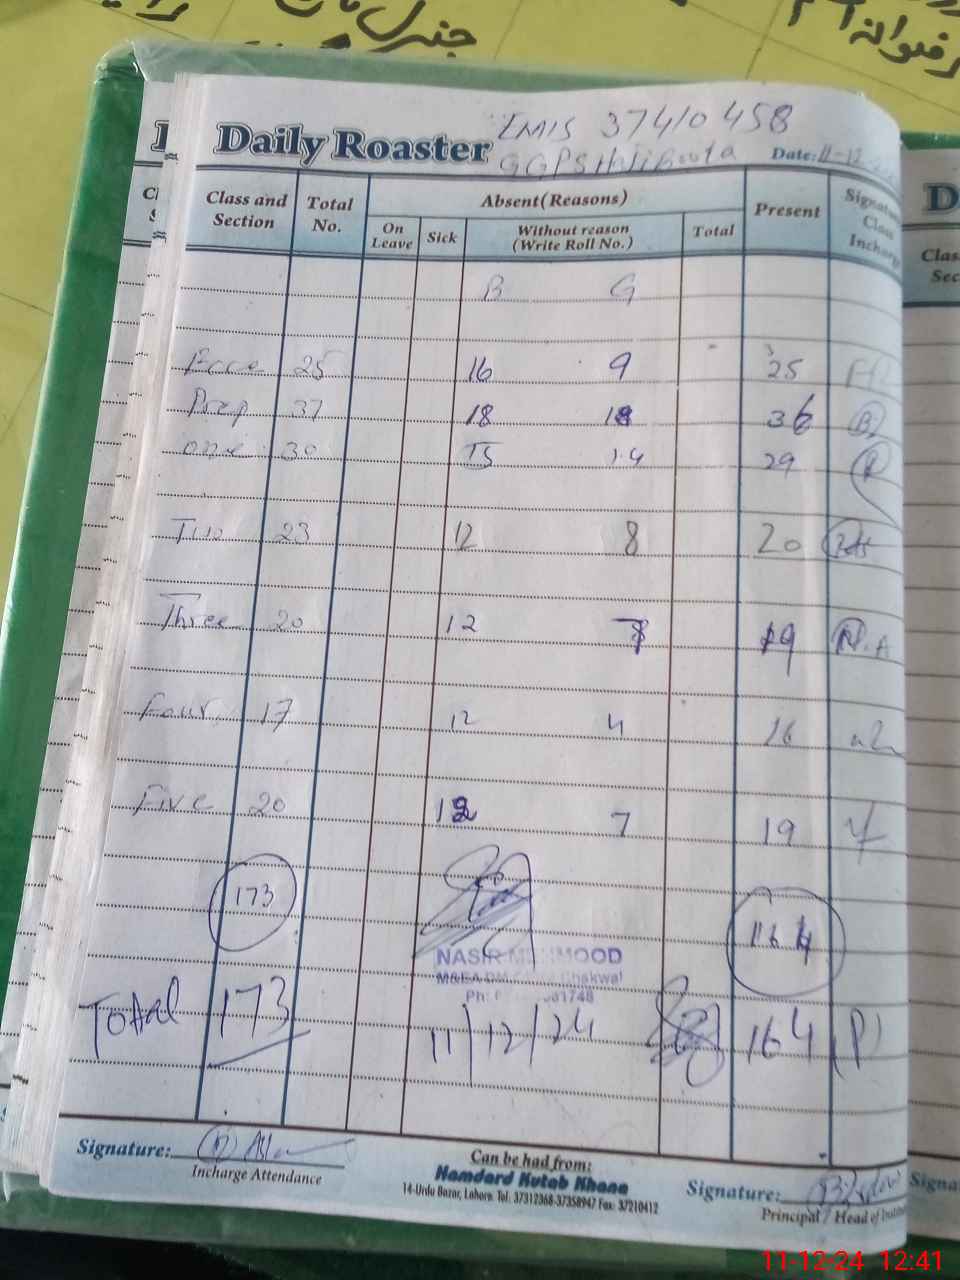 جنرل
رضوانہ
EMIS 37410458
Daily Roaster
GGPS Haji Boota
Date: 11-12-
Class and Section
Total No.
Absent (Reasons)
Present
Signature Class Incharge
On Leave
Sick
Without reason (Write Roll No.)
Total
B G
Ecce 25 16 9 25
Prep 37 18 18 36
one 30 15 14 29
Two 23 12 8 20
Three 20 12 7 19 N.A
Four 17 12 4 16
Five 20 12 7 19
173 164
NASIR MEHMOOD
M&EA Chakwal
Ph:
Total 173 11/12/24 164 (P)
Signature:
Incharge Attendance
Can be had from:
Hamdard Kutab Khana
14-Urdu Bazar, Lahore. Tel: 37312368-37358947 Fax: 37210412
Signature:
Principal / Head of
11-12-24 12:41